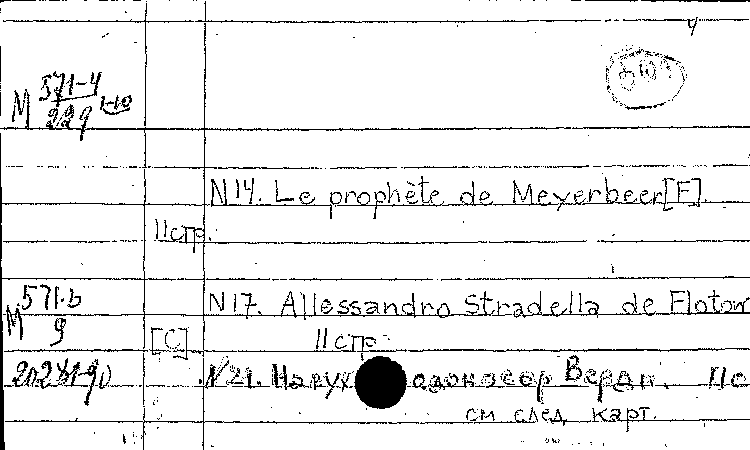 4
М 571-4 1-10
229
N14. Le prophète de Meyerbeer [F].
11стр.
М 571-b
9
N17. Allessandro Stradella de Flotow
[C]
11стр.
N21. Навух одоносор Верди. 11с
см след. карт.